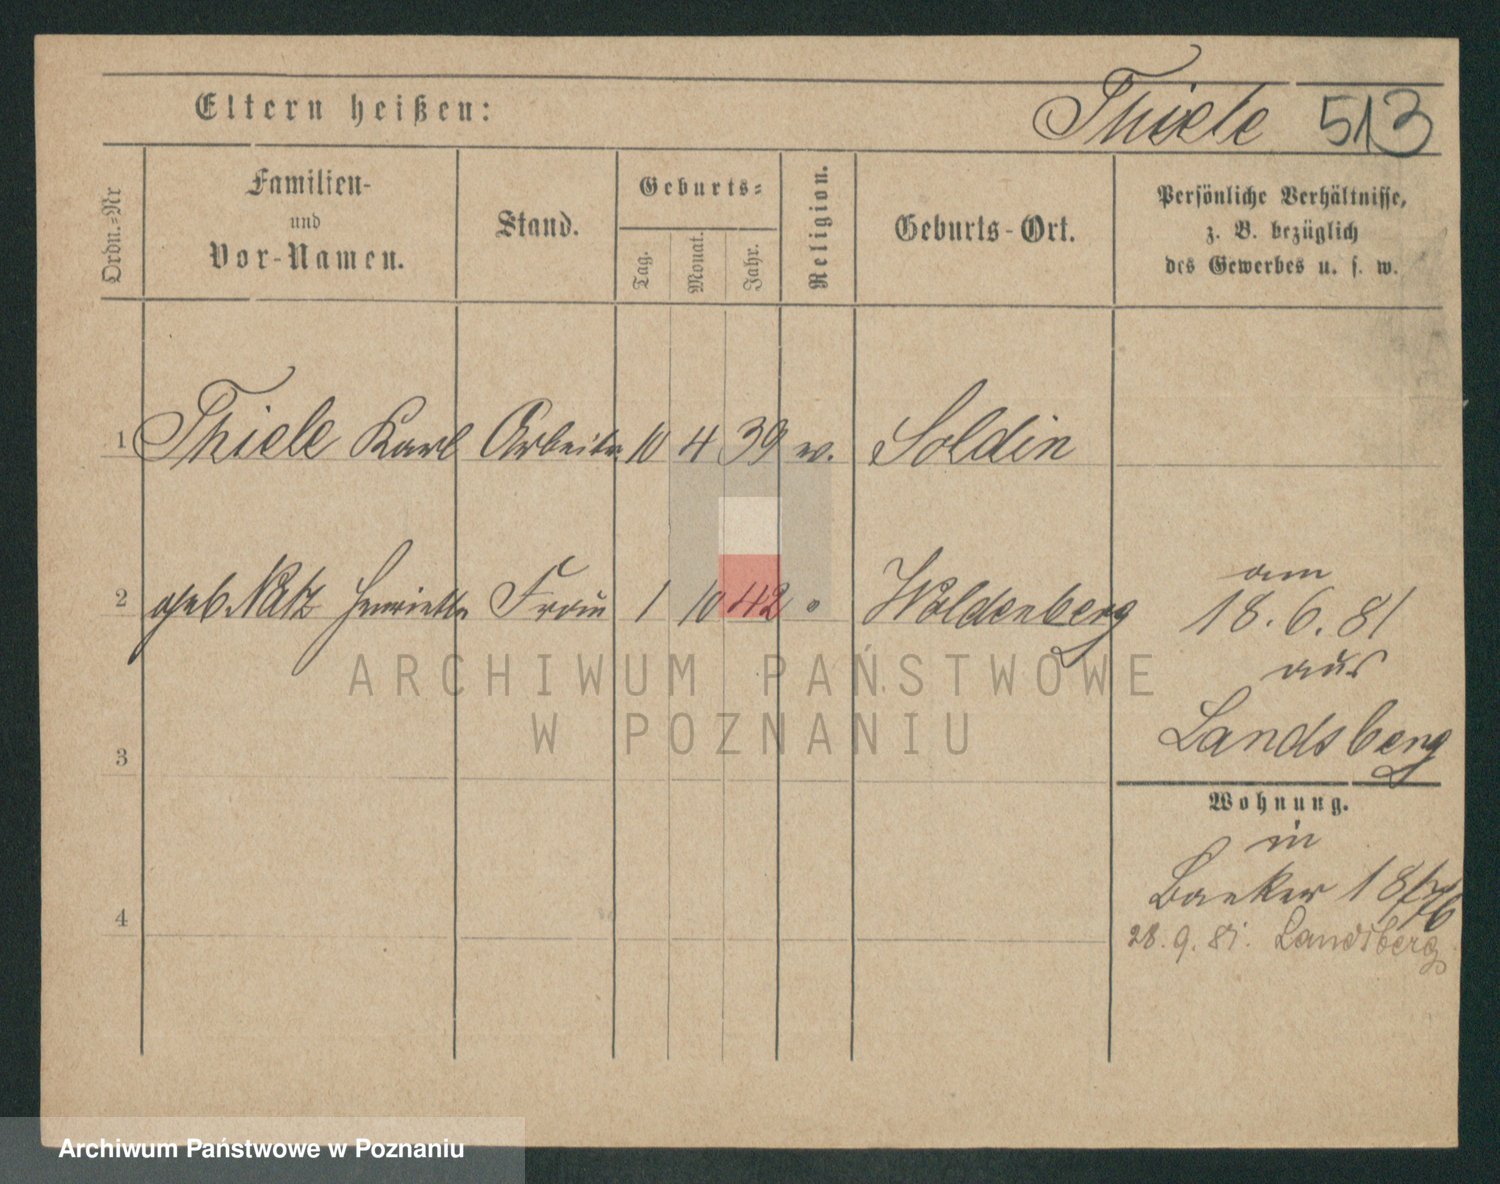 Eltern heißen:
Thiele 513
Ordn.=Nr
Familien-
und
Vor-Namen.
Stand.
Geburts=
Tag.
Monat.
Jahr.
Religion.
Geburts-Ort.
Persönliche Verhältnisse,
z. B. bezüglich
des Gewerbes u. s. w.
1 Thiele Karl Arbeiter 10 4 39 ev. Soldin
2 geb. Natz Henriette Frau 1 10 42 " Woldenberg
am
18. 6. 81
aus
Landsberg
3
Wohnung.
in
Baeker 18
4
28. 9. 81. Landsberg
ARCHIWUM PAŃSTWOWE
W POZNANIU
Archiwum Państwowe w Poznaniu